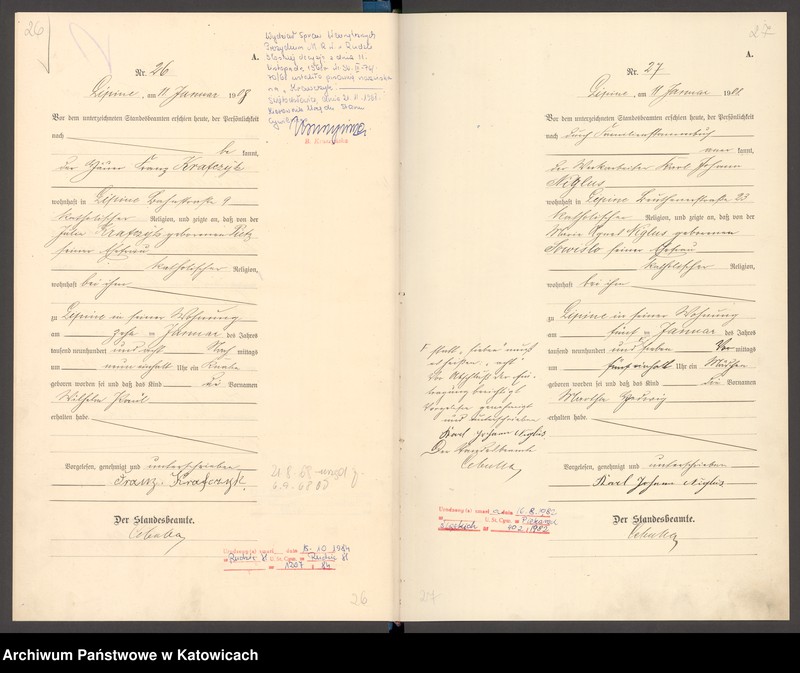 26
A.
Nr. 26
Lipine, am 11 Januar 1908
Vor dem unterzeichneten Standesbeamten erschien heute, der Persönlichkeit
nach
be kannt,
der Häuer Franz Krafczyk
wohnhaft in Lipine Bahnstraße 9
katholischer Religion, und zeigte an, daß von der
Julie Krafczyk geborenen
seiner Ehefrau
katholischer Religion,
wohnhaft bei ihm
zu Lipine in seiner Wohnung
am zehn Januar des Jahres
tausend neunhundert und acht Nach mittags
um neun einhalb Uhr ein Knabe
geboren worden sei und daß das Kind die Vornamen
Wilhelm Paul
erhalten habe.
Vorgelesen, genehmigt und unterschrieben
Franz Krafczyk.
Der Standesbeamte.
Cebulla
Wydział Spraw Wewnętrznych
Prezydium M.R.N. w Rudzie
Śląskiej decyzją z dnia 11.
listopada
ustalił pisownię nazwiska
na "Krawczyk
Kierownik Urzędu Stanu
Cywilnego
21.8.68
6.9.68
Urodzony(a) zmarł dnia 15.10.1984
w Rudzie Śl U.St.Cyw. w Rudzie Śl
nr 1207 / 84
26
27
A.
Nr. 27
Lipine, am 11 Januar 1908
Vor dem unterzeichneten Standesbeamten erschien heute, der Persönlichkeit
nach durch Familienstammbuch
aner kannt,
der Werkarbeiter Karl Johann
Niglus
wohnhaft in Lipine Beuthenerstraße 23
katholischer Religion, und zeigte an, daß von der
Marie Agnes Niglus geborenen
Sowislo seiner Ehefrau
katholischer Religion,
wohnhaft bei ihm
zu Lipine in seiner Wohnung
am fünf Januar des Jahres
tausend neunhundert und sieben Vor mittags
um fünf einhalb Uhr ein Mädchen
geboren worden sei und daß das Kind die Vornamen
Martha Hedwig
erhalten habe.
Vorgelesen, genehmigt und unterschrieben
Karl Johann Niglus
Der Standesbeamte.
Cebulla
statt "sieben" muß
es heißen "acht"
Vor Abschluß der Ein-
tragung berichtigt
Vorgelesen genehmigt
und unterschrieben
Karl Johann Niglus
Der Standesbeamte
Cebulla
Urodzony(a) zmarł a dnia 16.8.1982
w Piekarach U.St.Cyw. w Piekarach
Śląskich nr 402 / 1982
27
Archiwum Państwowe w Katowicach